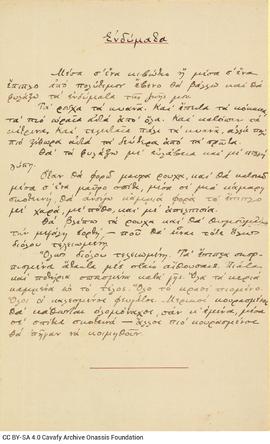 Ἐνδύματα
Μέσα σ’ ἕνα κιβώτιο ἢ μέσα σ’ ἕνα
ἔπιπλο ἀπὸ πολύτιμον ἔβενο θὰ βάλλω καὶ θὰ
φυλάξω τὰ ἐνδύματα τῆς ζωῆς μου.
Τὰ ροῦχα τὰ κυανᾶ. Καὶ ἔπειτα τὰ κόκκινα,
τὰ πιὸ ὡραῖα αὐτὰ ἀπὸ ὅλα. Καὶ κατόπιν τὰ
κίτρινα. Καὶ τελευταῖα πάλι τὰ κυανᾶ, ἀλλὰ πολὺ
πιὸ ξέθωρα αὐτὰ τὰ δεύτερα ἀπὸ τὰ πρῶτα.
Θὰ τὰ φυλάξω μὲ εὐλάβεια καὶ μὲ πολλὴ
λύπη.
Ὅταν θὰ φορῶ μαῦρα ροῦχα, καὶ θὰ κατοικῶ
μέσα σ’ ἕνα μαῦρο σπίτι, μέσα σὲ μιὰ κάμαρη
σκοτεινή, θὰ ἀνοίγω καμμιὰ φορὰ τὸ ἔπιπλο
μὲ χαρά, μὲ πόθο, καὶ μὲ ἀπελπισία.
Θὰ βλέπω τὰ ροῦχα καὶ θὰ θυμοῦμαι
τὴν μεγάλη ἑορτὴ — ποῦ θὰ εἶναι τότε ὅλως
διόλου τελειωμένη.
Ὅλως διόλου τελειωμένη. Τὰ ἔπιπλα σκορ-
πισμένα ἄτακτα μὲς σταὶς αἴθουσαις. Πιάτα
καὶ ποτήρια σπασμένα κατὰ γῆς. Ὅλα τὰ κεριὰ
καμμένα ὣς τὸ τέλος. Ὅλο τὸ κρασὶ πιομένο.
Ὅλοι οἱ καλεσμένοι φευγάτοι. Μερικοὶ κουρασμένοι
θὰ κάθωνται ὁλομόναχοι, σὰν κ’ ἐμένα, μέσα
σὲ σπίτια σκοτεινὰ — ἄλλοι πιὸ κουρασμένοι
θὰ πῆγαν νὰ κοιμηθοῦν.
CC BY-SA 4.0 Cavafy Archive Onassis Foundation